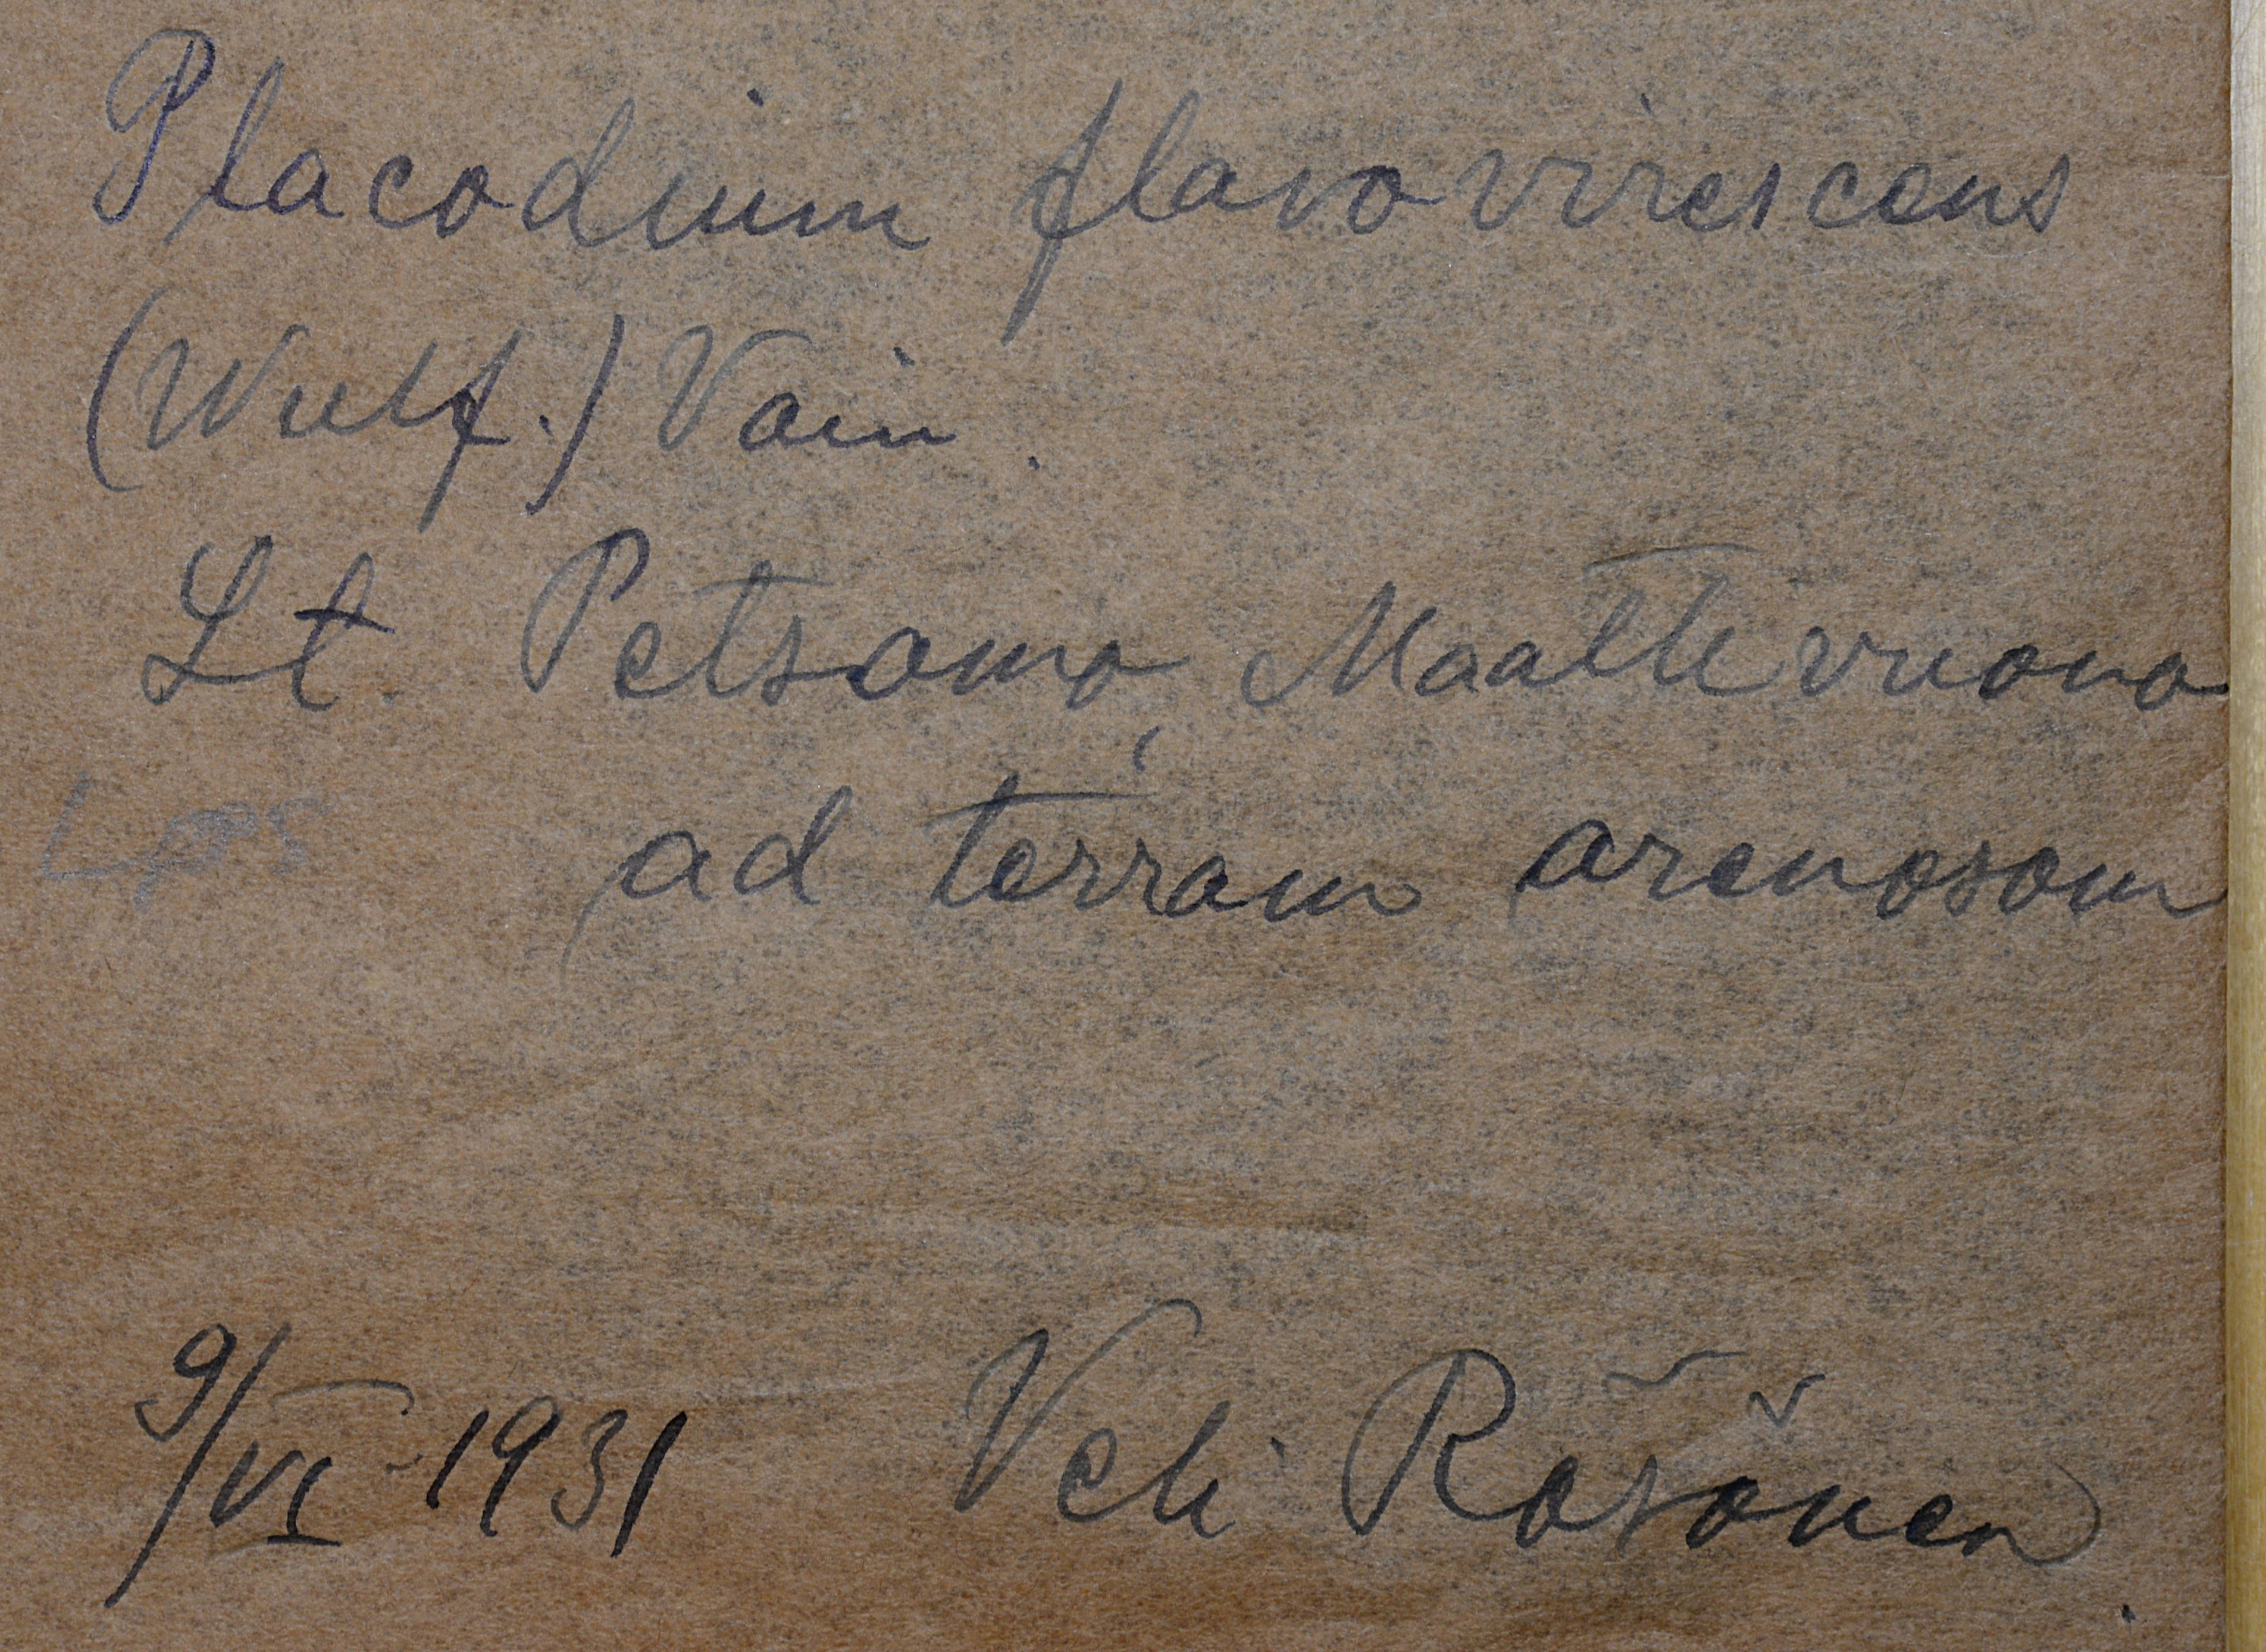 Placodium flavovirescens
(Wulf.) Vain.
Lt. Petsamo, Maattivuono
Lps
ad terram arenosam
9/VI 1931 Veli Räsänen